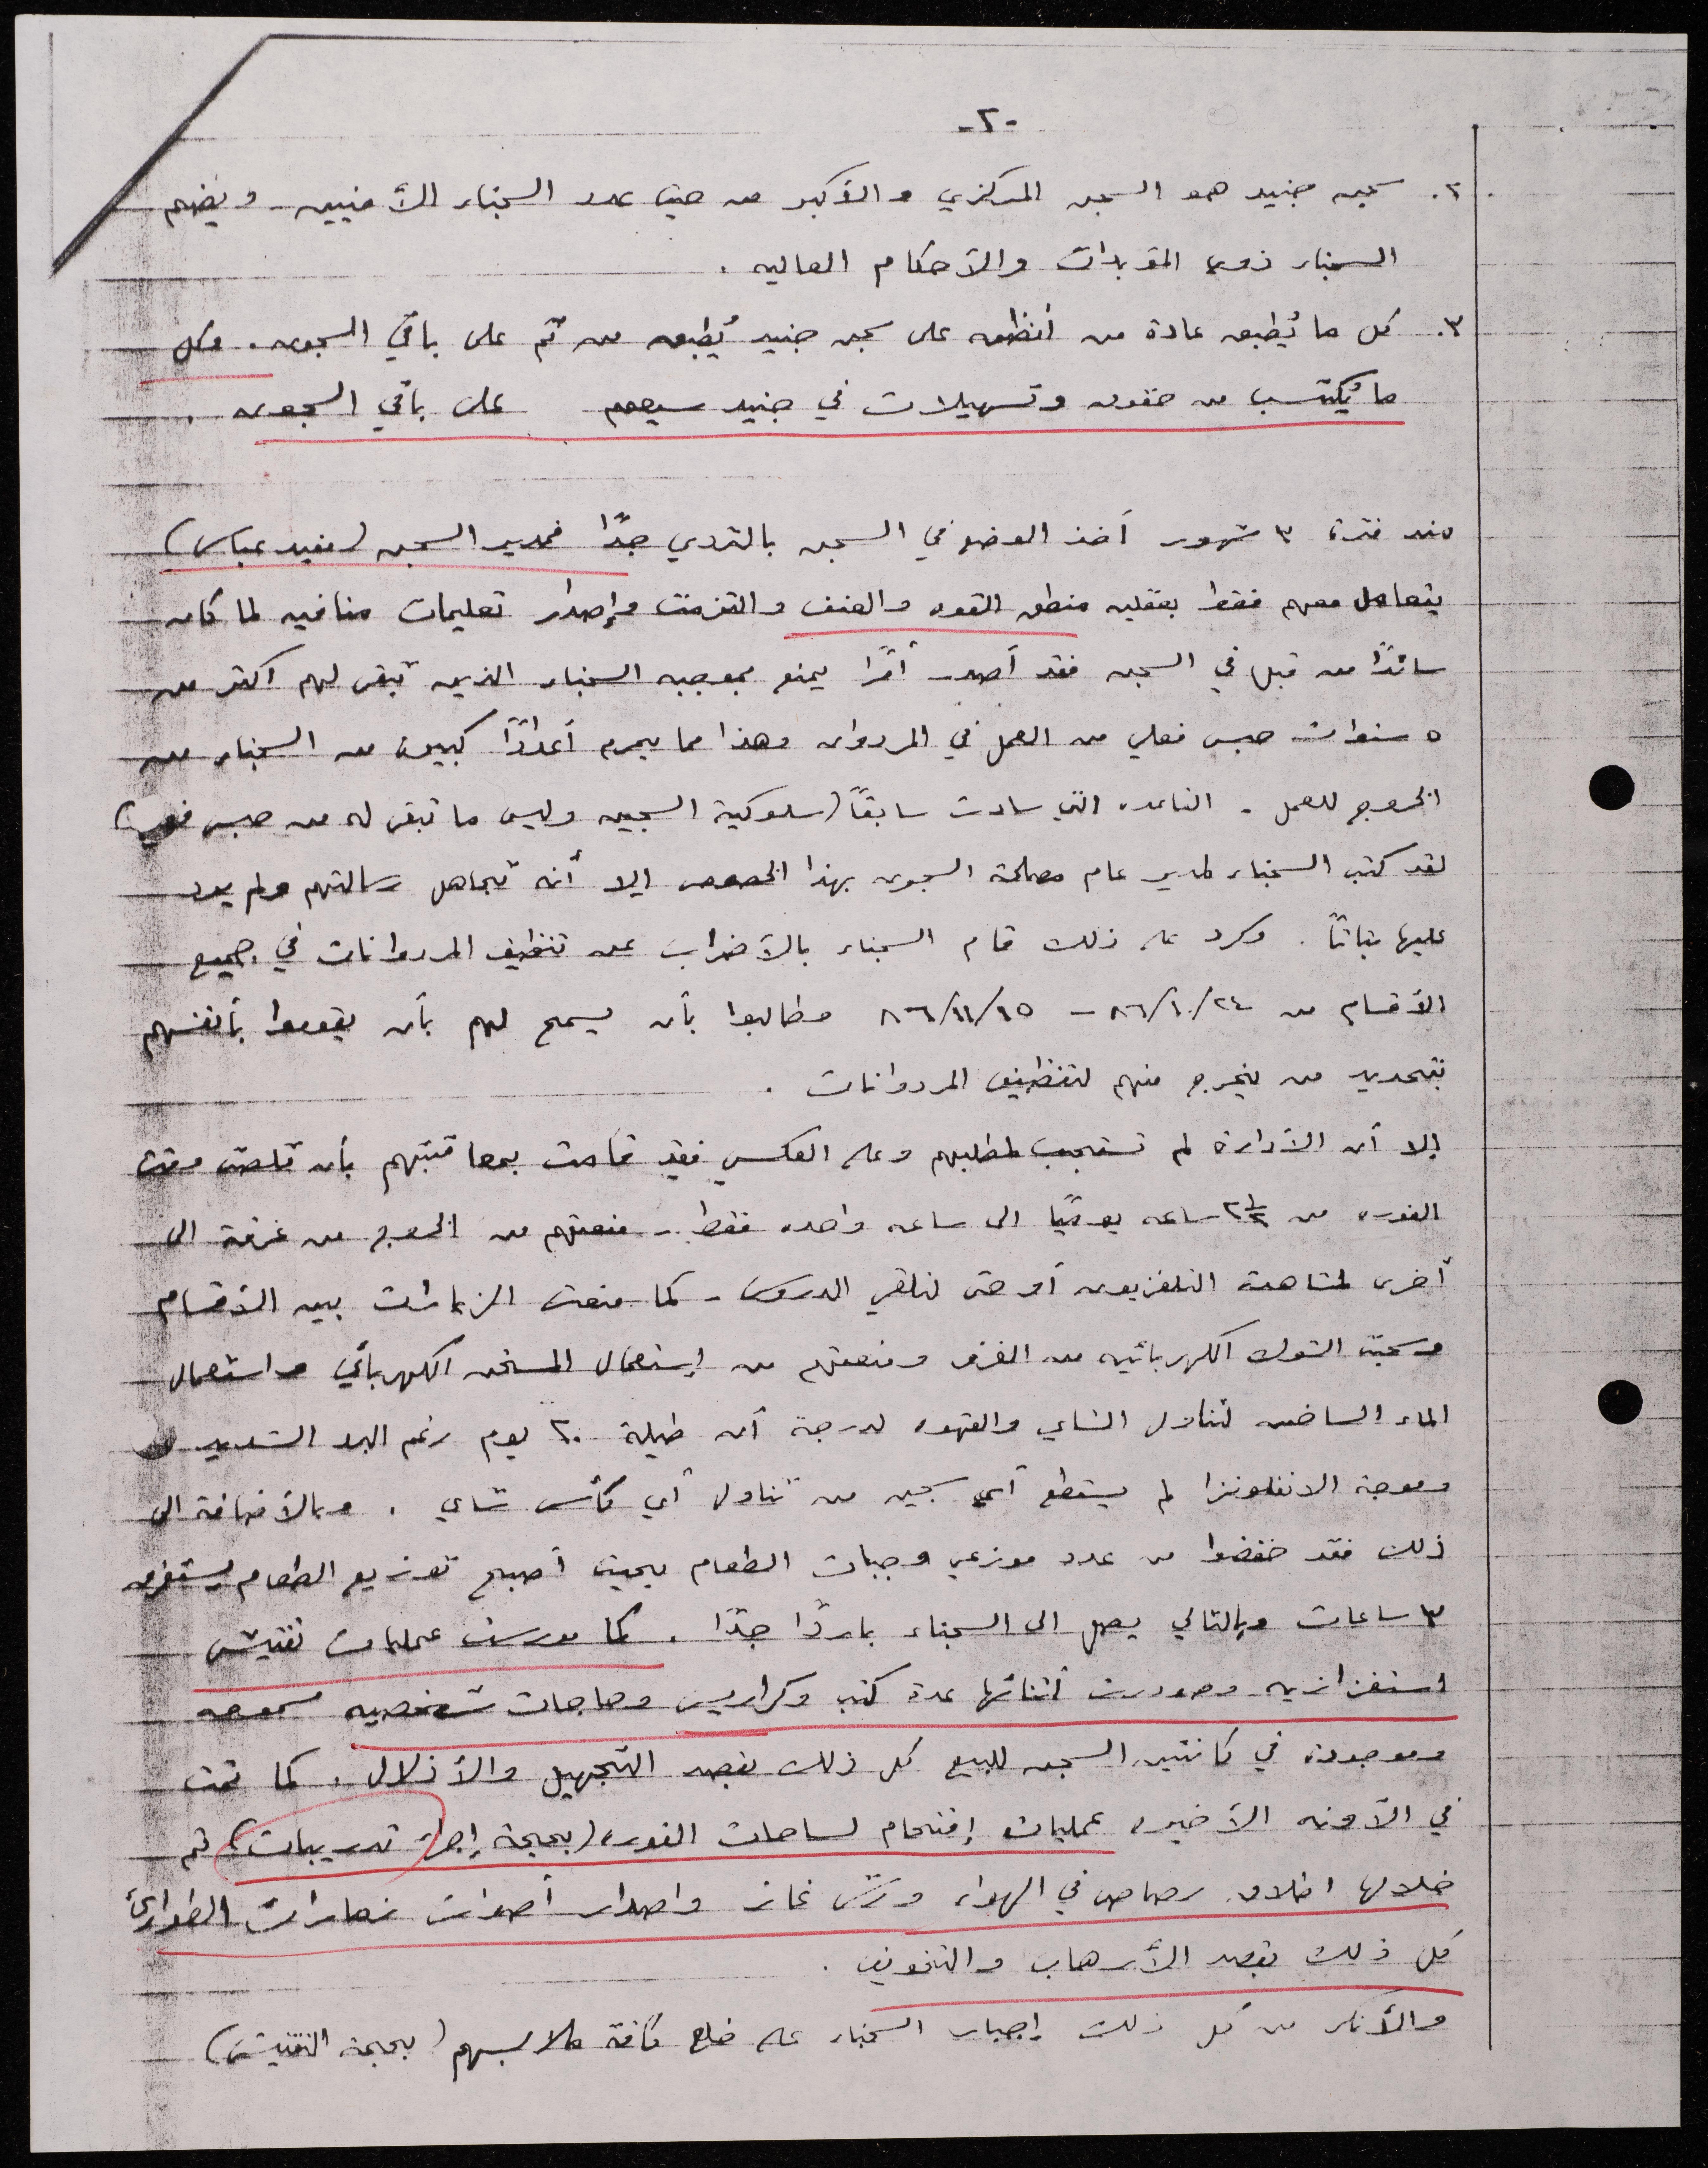 -٢-
٢. سجن جنيد هو السجن المركزي والأكبر من حيث عدد السجناء الأمنيين - ويضم
السجناء ذوي المؤبدات والأحكام العاليه .
٣. كل ما يُطبق عادة من أنظمه على سجن جنيد يُطبق من ثم على باقي السجون . وكل
ما يُكتسب من حقوق وتسهيلات في جنيد سيعمم على باقي السجون .
منذ فترة ٣ شهور أخذ الوضع في السجن بالتردي جدًا فمدير السجن (مفيد عباس)
يتعامل معهم فقط بعقليه منطق القوه والعنف والتزمت وإصدار تعليمات منافيه لما كان
سائدًا من قبل في السجن فقد أصدر أمرًا يمنع بموجبه السجناء الذين تبقى لهم اكثر من
٥ سنوات حبس فعلي من العمل في المردوان وهذا مما يحرم أعدادًا كبيره من السجناء من
الخروج للعمل . القاعده التي سادت سابقاً (سلوكية السجين وليس ما تبقى له من حبس فعلي)
لقد كتب السجناء لمدير عام مصلحة السجون بهذا الخصوص إلا أنه تجاهل رسالتهم ولم يرد
عليها بتاتاً . وكرد على ذلك قام السجناء بالأضراب عن تنظيف المردوانات في جميع
الأقسام من ٢٤/١٠/٨٦ - ١٥/١١/٨٦ وطالبوا بأن يسمح لهم بأن يقوموا بأنفسهم
بتحديد من يخرج منهم لتنظيف المردوانات .
إلا أن الأدارة لم تستجب لمطلبهم وعلى العكس فقد قامت بمعاقبتهم بأن قلصت وقت
الفوره من ٢½ ساعه يوميًا الى ساعه واحده فقط - منعتهم من الخروج من غرفة الى
أخرى لمشاهدة التلفزيون أو حتى لتلقي الدروس - كما منعت الزيارات بين الأقسام
وسحبت الشوك الكهربائيه من الغرف ومنعتهم من إستعمال المسخن الكهربائي واستعمال
الماء الساخن لتناول الشاي والقهوه لدرجة أن طيلة ٢٠ يوم رغم البرد الشديد
وموجة الانفلونزا لم يستطع أي سجين من تناول أي كأس شاي . وبالأضافة الى
ذلك فقد خفضوا من عدد موزعي وجبات الطعام بحيث أصبح توزيع الطعام يستغرق
٣ ساعات وبالتالي يصل الى السجناء باردًا جدًا . كما مورست عمليات تفتيش
استفزازيه وصودرت أثنائها عدة كتب وكراريس وحاجات شخصيه مسموحه
وموجوده في كانتين السجن للبيع كل ذلك بقصد التجهيل والأذلال . كما تمت
في الآونه الأخيره عمليات إقتحام لساحات الفوره (بحجة إجراء تدريبات) تم
خلالها اطلاق رصاص في الهواء ورش غاز واصدار أصوات زمارات الطوارئ
كل ذلك بقصد الأرهاب والتخويف .
والأنكر من كل ذلك إجبار السجناء على خلع كافة ملابسهم (بحجة التفتيش)